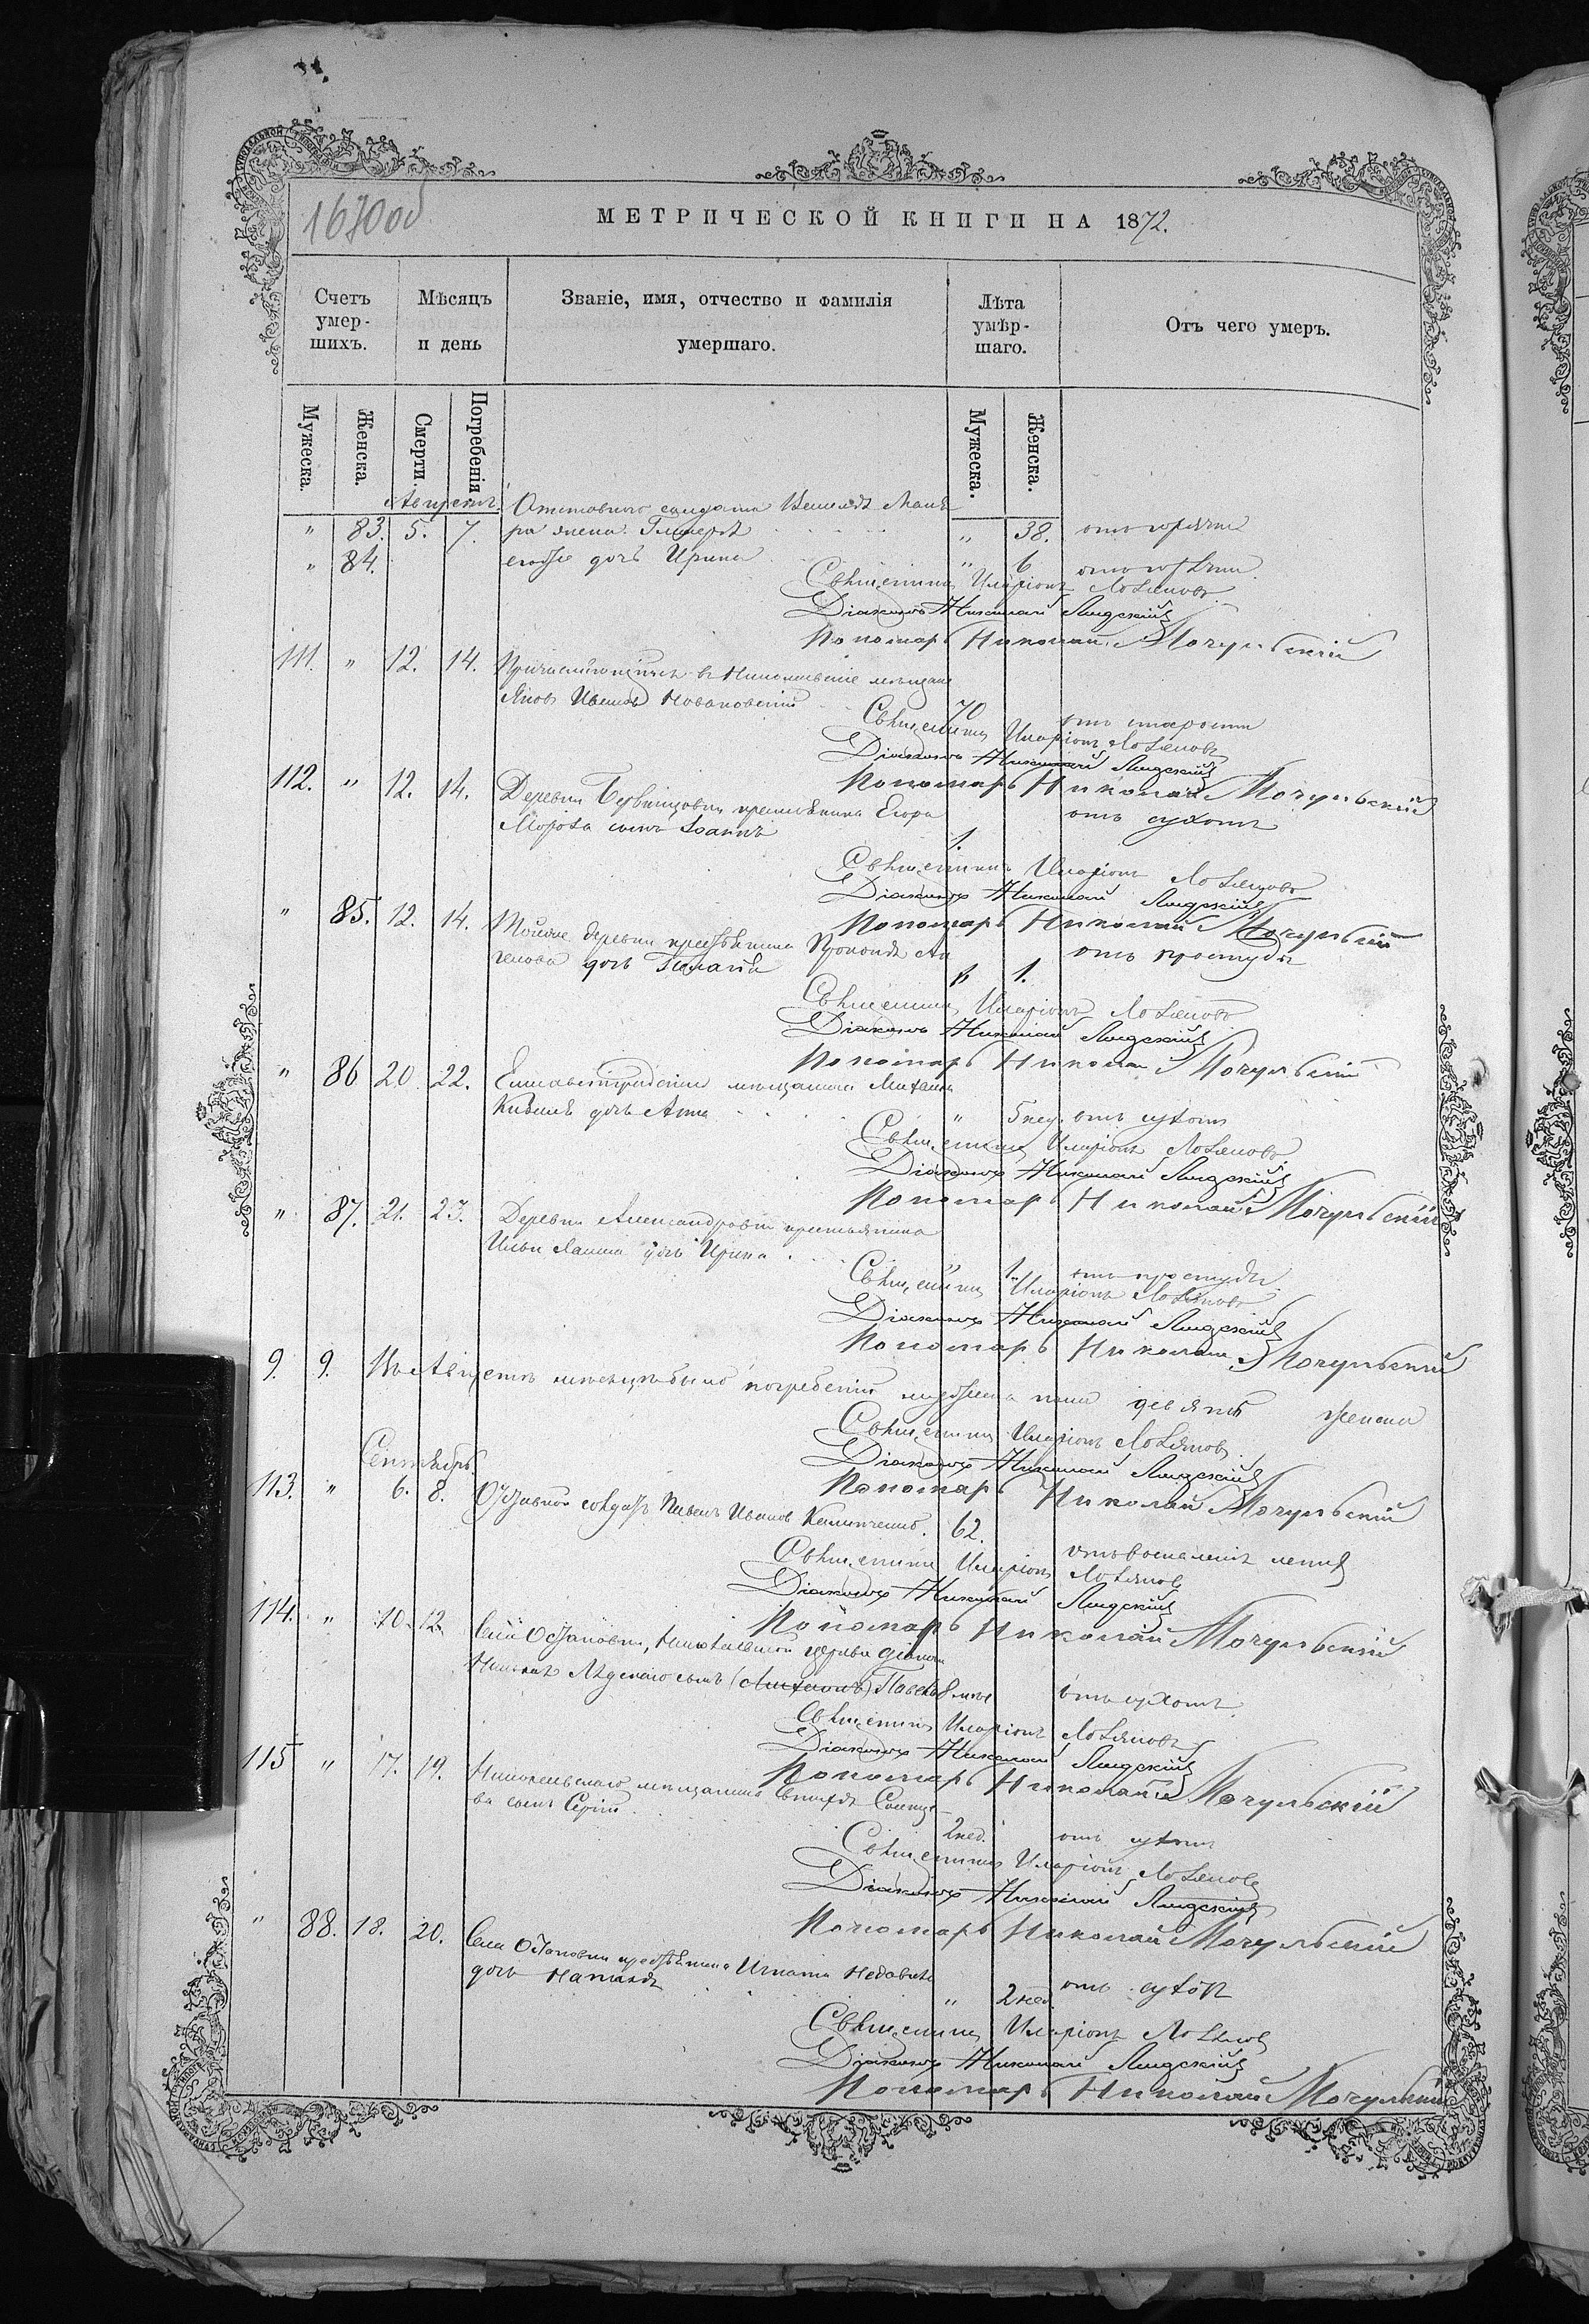 1670об
МЕТРИЧЕСКОЙ КНИГИ НА 1872.
Счетъ умер-шихъ.
Мѣсяцъ и день
Званіе, имя, отчество и фамилія умершаго.
Лѣта умѣр-шаго.
Отъ чего умеръ.
Мужеска.
Женска.
Смерти.
Погребенія
Мужеска.
Женска.
Августъ.
Отставного солдата
" 83. 5. 7. жена " 38. отъ горячки
" 84. его же дочь Ирина " 6 отъ горячки
Священникъ Иларіонъ Лозановъ
Діаконъ Николай Лидскій
Пономарь Николай Мочульскій
111. " 12. 14.
Яковъ Ивановъ Новаковскій 70 отъ старости
Священникъ Иларіонъ Лозановъ
Діаконъ Николай Лидскій
Пономарь Николай Мочульскій
112. " 12. 14. Деревни крестьянина Егора
Мороза сынъ Іоаннъ 1. отъ сухотъ
Священникъ Иларіонъ Лозановъ
Діаконъ Николай Лидскій
Пономарь Николай Мочульскій
" 85. 12. 14. Тойже деревни крестьянина
дочь " 1. отъ простуды
Священникъ Иларіонъ Лозановъ
Діаконъ Николай Лидскій
Пономарь Николай Мочульскій
" 86 20. 22. Елисаветградскаго мѣщанина Михаила
дочь Анна " 5 нед. отъ сухотъ
Священникъ Иларіонъ Лозановъ
Діаконъ Николай Лидскій
Пономарь Николай Мочульскій
" 87. 21. 23. Деревни Александровки крестьянина
Ильи дочь Ирина " 1. отъ простуды
Священникъ Иларіонъ Лозановъ
Діаконъ Николай Лидскій
Пономарь Николай Мочульскій
9. 9. Въ Августѣ мѣсяцѣ было погребеній мужеска пола девять женска
Священникъ Иларіонъ Лозановъ
Діаконъ Николай Лидскій
Пономарь Николай Мочульскій
Сентябрь.
113. " 6. 8. солдатъ Ивановъ 62. отъ воспаленія
Священникъ Иларіонъ Лозановъ
Діаконъ Николай Лидскій
Пономарь Николай Мочульскій
114. " 10. 12. Остаповки, Николаевской церкви діакона
Николая Лидскаго сынъ Павелъ 8 отъ сухотъ
Священникъ Иларіонъ Лозановъ
Діаконъ Николай Лидскій
Пономарь Николай Мочульскій
115 " 17. 19. мѣщанина
сынъ Сергій 2 нед. отъ сухотъ
Священникъ Иларіонъ Лозановъ
Діаконъ Николай Лидскій
Пономарь Николай Мочульскій
" 88. 18. 20. Села Остаповки крестьянина Игната
дочь Наталія " 2 нед. отъ сухотъ
Священникъ Иларіонъ Лозановъ
Діаконъ Николай Лидскій
Пономарь Николай Мочульскій